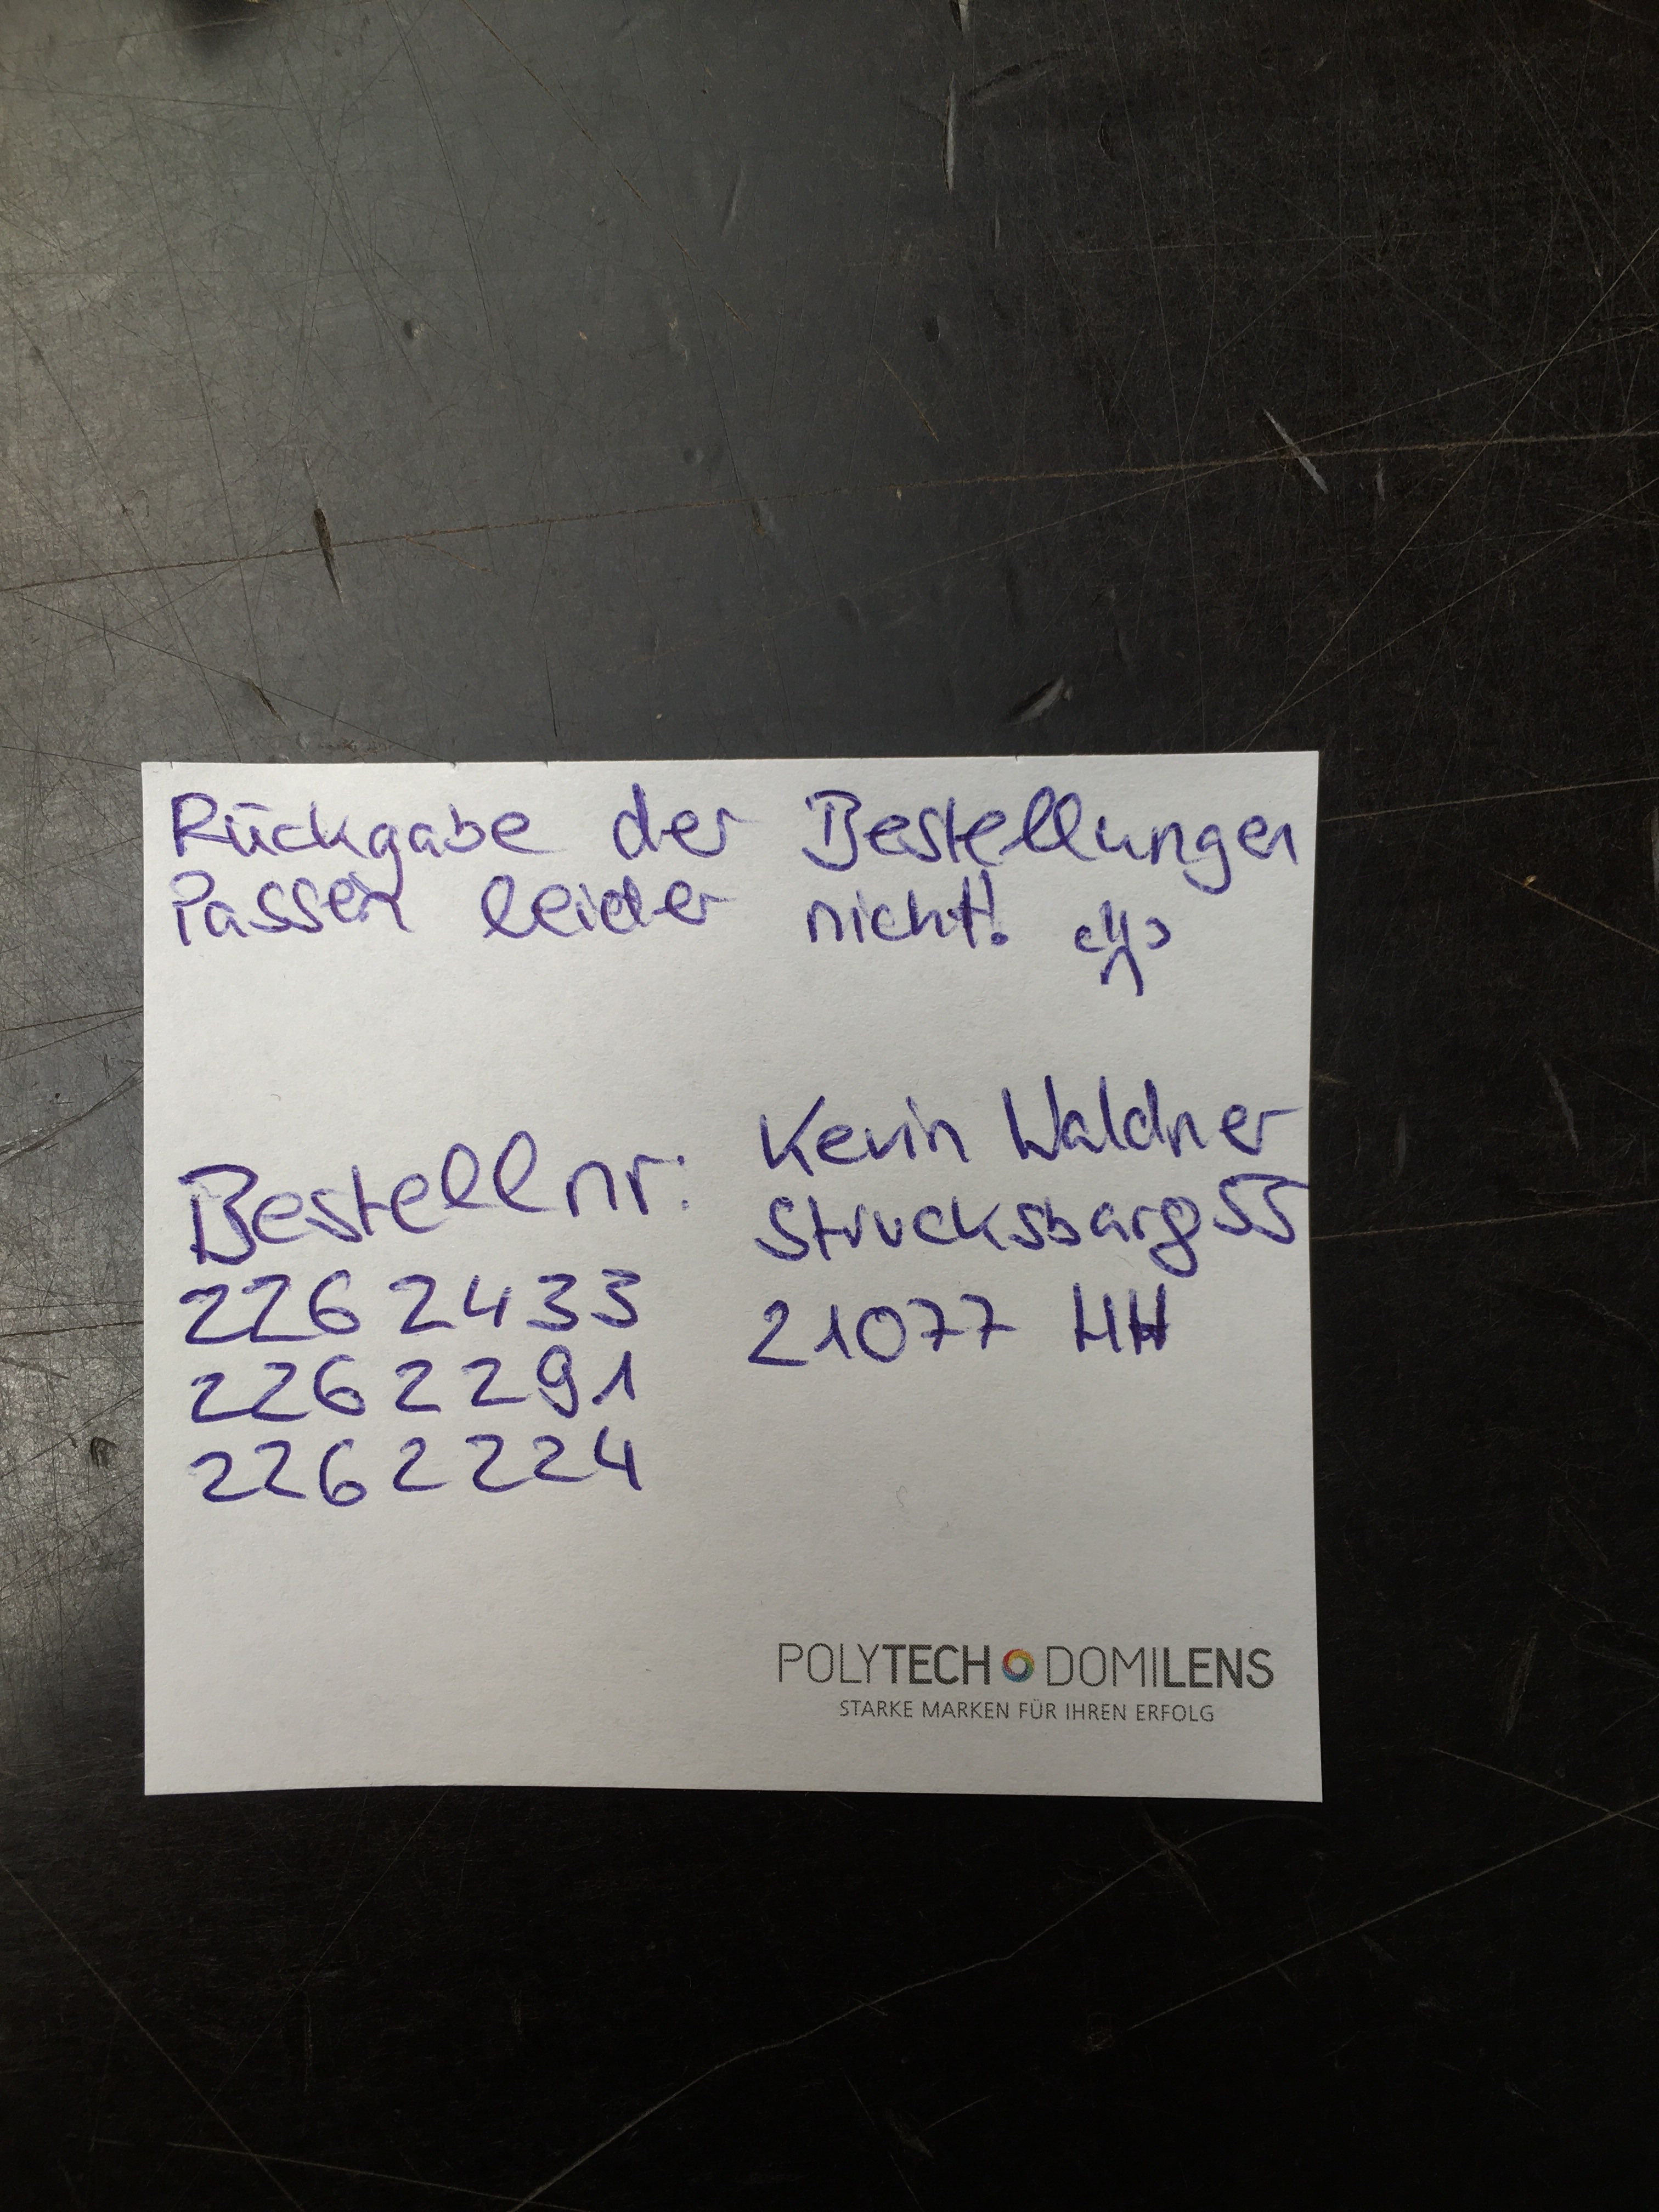 Rückgabe der Bestellungen
Passen leider nicht!
Bestellnr:
2262433
2262291
2262224
Kevin Waldner
Strucksbarg 55
21077 HH
POLYTECH DOMILENS
STARKE MARKEN FÜR IHREN ERFOLG